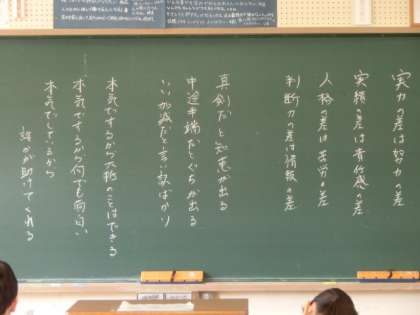 実力の差は努力の差
実績の差は責任感の差
人格の差は苦労の差
判断力の差は情報の差
真剣だと知恵が出る
中途半端だとぐちが出る
いい加減だと言い訳ばかり
本気でするから大抵のことはできる
本気でするから何でも面白い
本気でしているから
誰かが助けてくれる